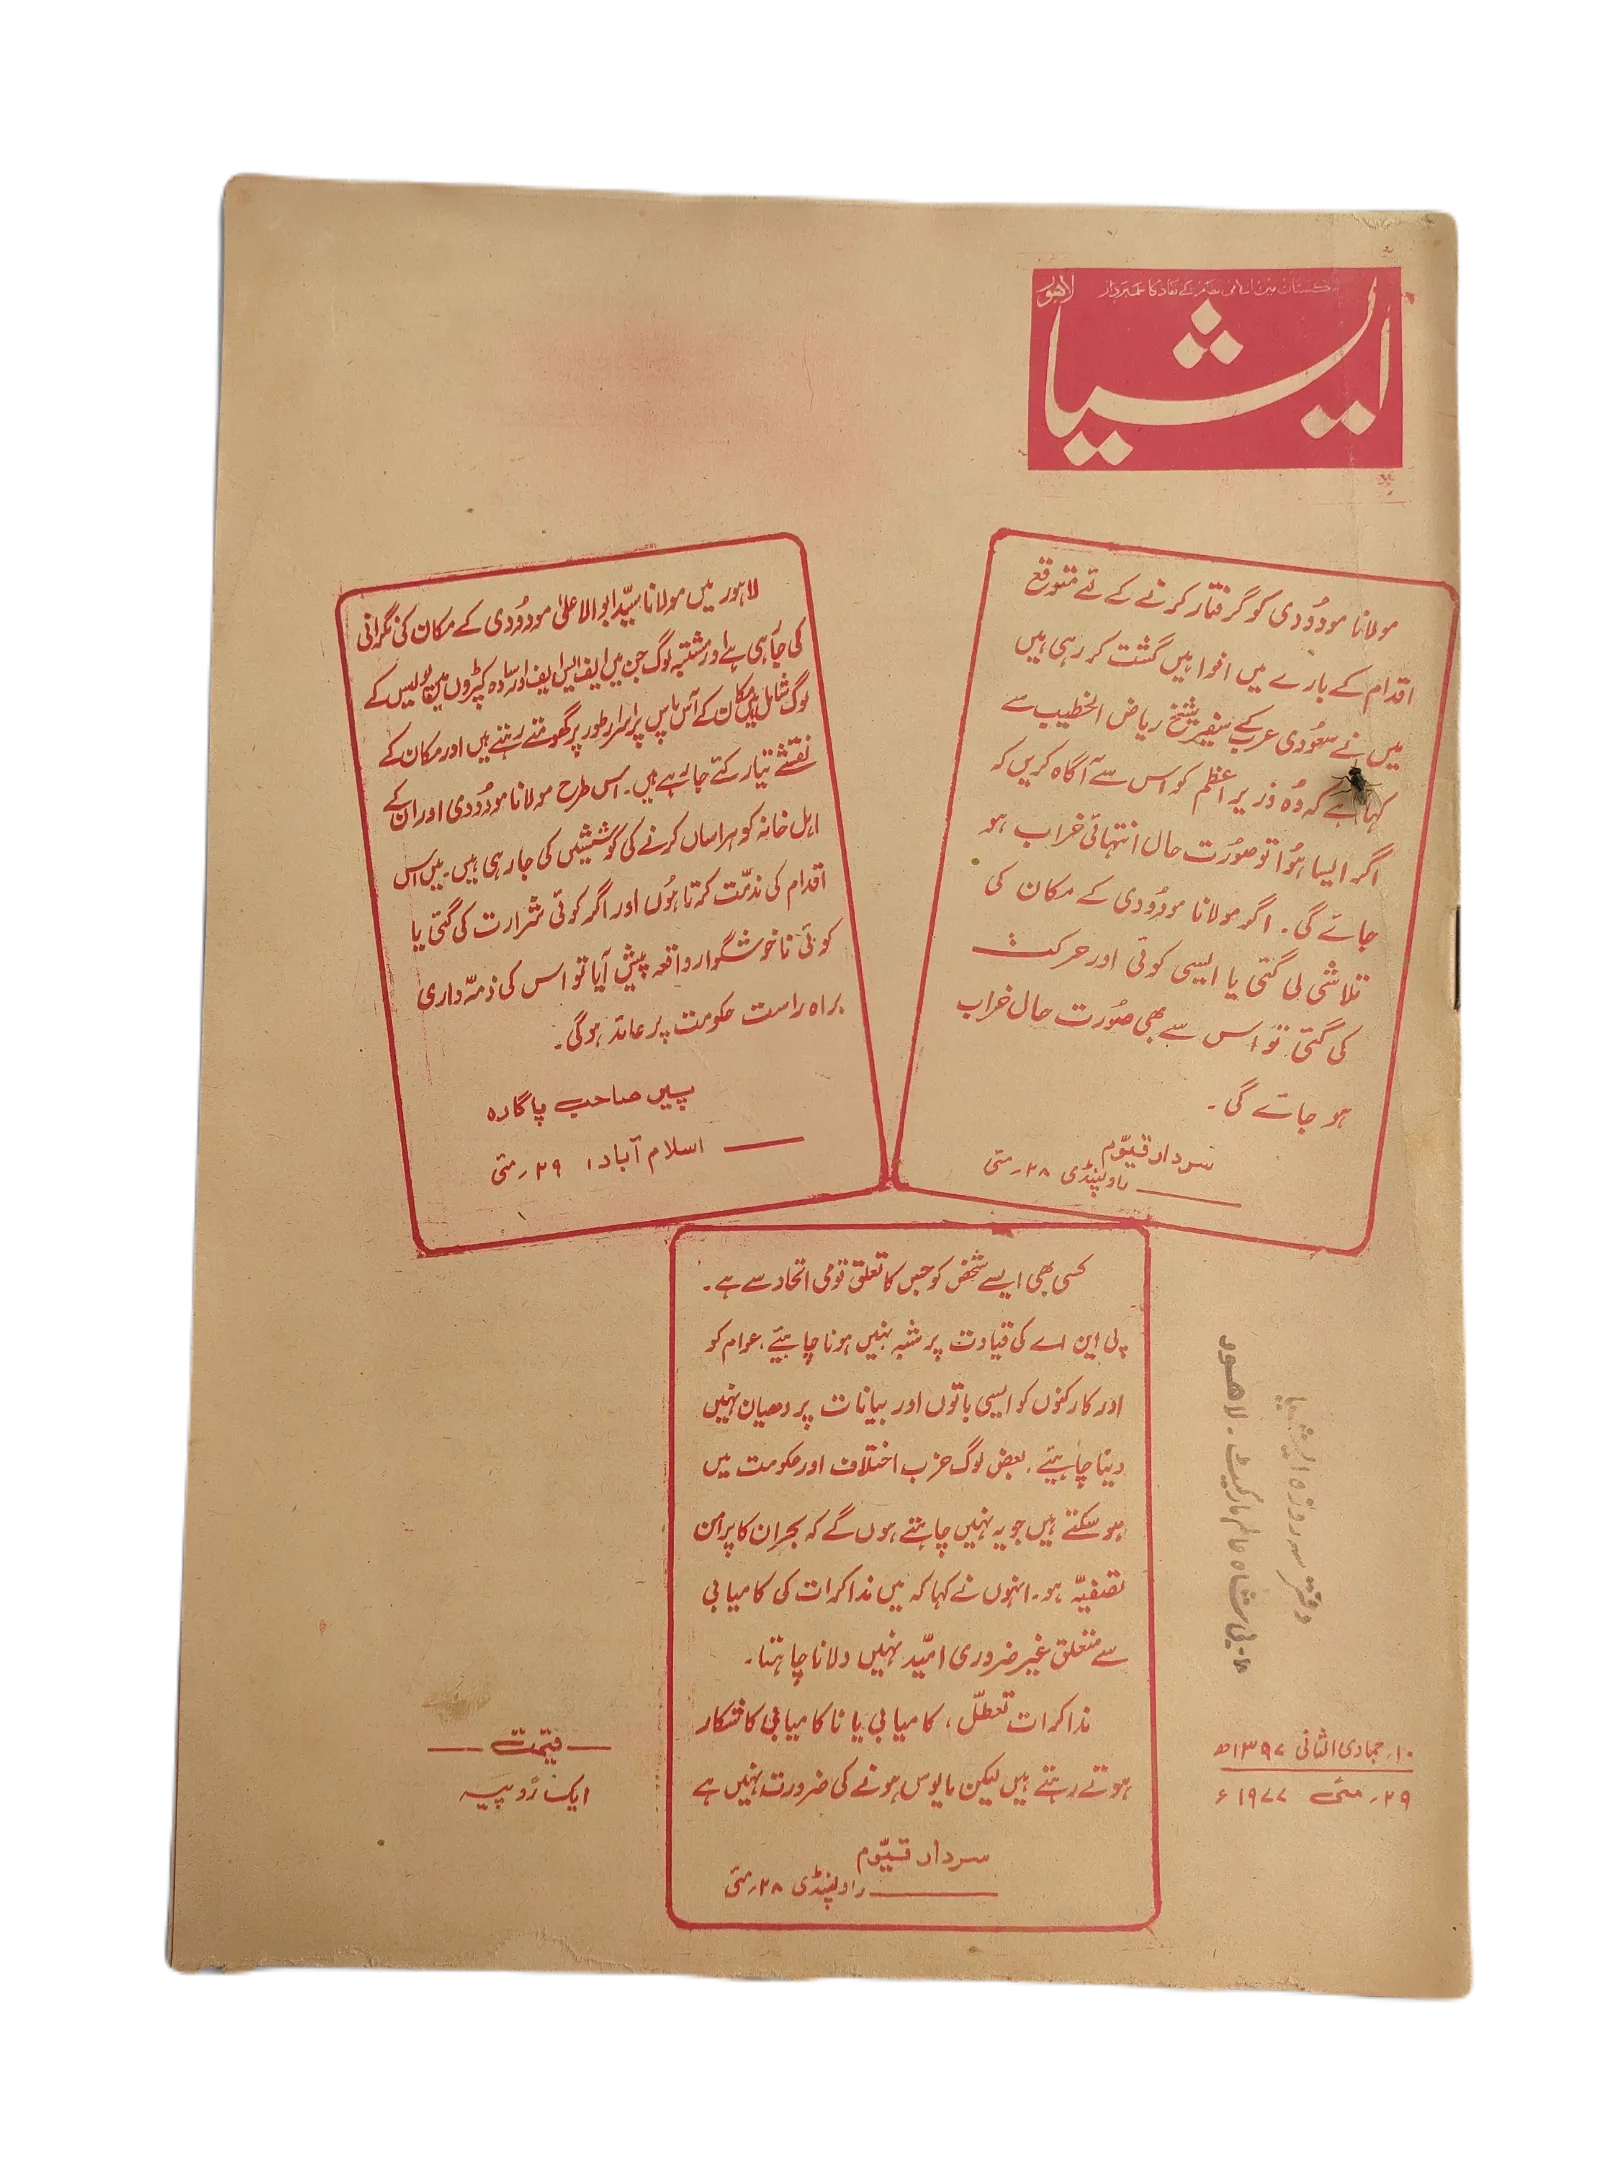 پاکستان میں اسلامی نظام کے نفاذ کا علمبردار
لاہور
ایشیا
مولانا مودُودی کو گرفتار کرنے کے لئے متوقع
اقدام کے بارے میں افواہیں گشت کر رہی ہیں
میں نے سعُودی عرب کے سفیر شیخ ریاض الخطیب سے
کہا ہے کہ وُہ وزیرِ اعظم کو اس سے آگاہ کریں کہ
اگر ایسا ہُوا تو صوُرت حال انتہائی خراب ہو
جائے گی۔ اگر مولانا مودُودی کے مکان کی
تلاشی لی گئی یا ایسی کوئی اور حرکت
کی گئی تو اس سے بھی صوُرت حال خراب
ہو جائے گی۔
سردار قیّوم
راولپنڈی ۲۸؍ مئی
لاہور میں مولانا سیّد ابوالاعلیٰ مودُودی کے مکان کی نگرانی
کی جا رہی ہے اور مشتبہ لوگ جن میں ایف ایس ایف اور سادہ کپڑوں میں پولیس کے
لوگ شامل ہیں مکان کے آس پاس پراسرار طور پر گھومتے رہتے ہیں اور مکان کے
نقشے تیار کئے جا رہے ہیں۔ اس طرح مولانا مودُودی اور ان کے
اہل خانہ کو ہراساں کرنے کی کوششیں کی جا رہی ہیں۔ میں اس
اقدام کی مذمّت کرتا ہُوں اور اگر کوئی شرارت کی گئی یا
کوئی ناخوشگوار واقعہ پیش آیا تو اس کی ذمّہ داری
براہ راست حکومت پر عائد ہو گی۔
پیر صاحب پاگارہ
اسلام آباد، ۲۹؍ مئی
کسی بھی ایسے شخص کو جس کا تعلق قومی اتحاد سے ہے۔
پی این اے کی قیادت پر شبہ نہیں ہونا چاہیئے، عوام کو
اور کارکنوں کو ایسی باتوں اور بیانات پر دھیان نہیں
دینا چاہیئے۔ بعض لوگ حزب اختلاف اور حکومت میں
ہو سکتے ہیں جو یہ نہیں چاہتے ہوں گے کہ بحران کا پرامن
تصفیہ ہو۔ انہوں نے کہا کہ میں مذاکرات کی کامیابی
سے متعلق غیر ضروری امّید نہیں دلانا چاہتا۔
مذاکرات تعطّل، کامیابی یا ناکامیابی کا شکار
ہوتے رہتے ہیں لیکن مایوس ہونے کی ضرورت نہیں ہے
سردار قیّوم
راولپنڈی ۲۸؍ مئی
دفتر سہ روزہ ایشیا
۸۔بی شاہ عالم مارکیٹ۔ لاہور
۱۰؍ جمادی الثانی ۱۳۹۷ھ
۲۹؍ مئی ۱۹۷۷ء
قیمت
ایک رُوپیہ